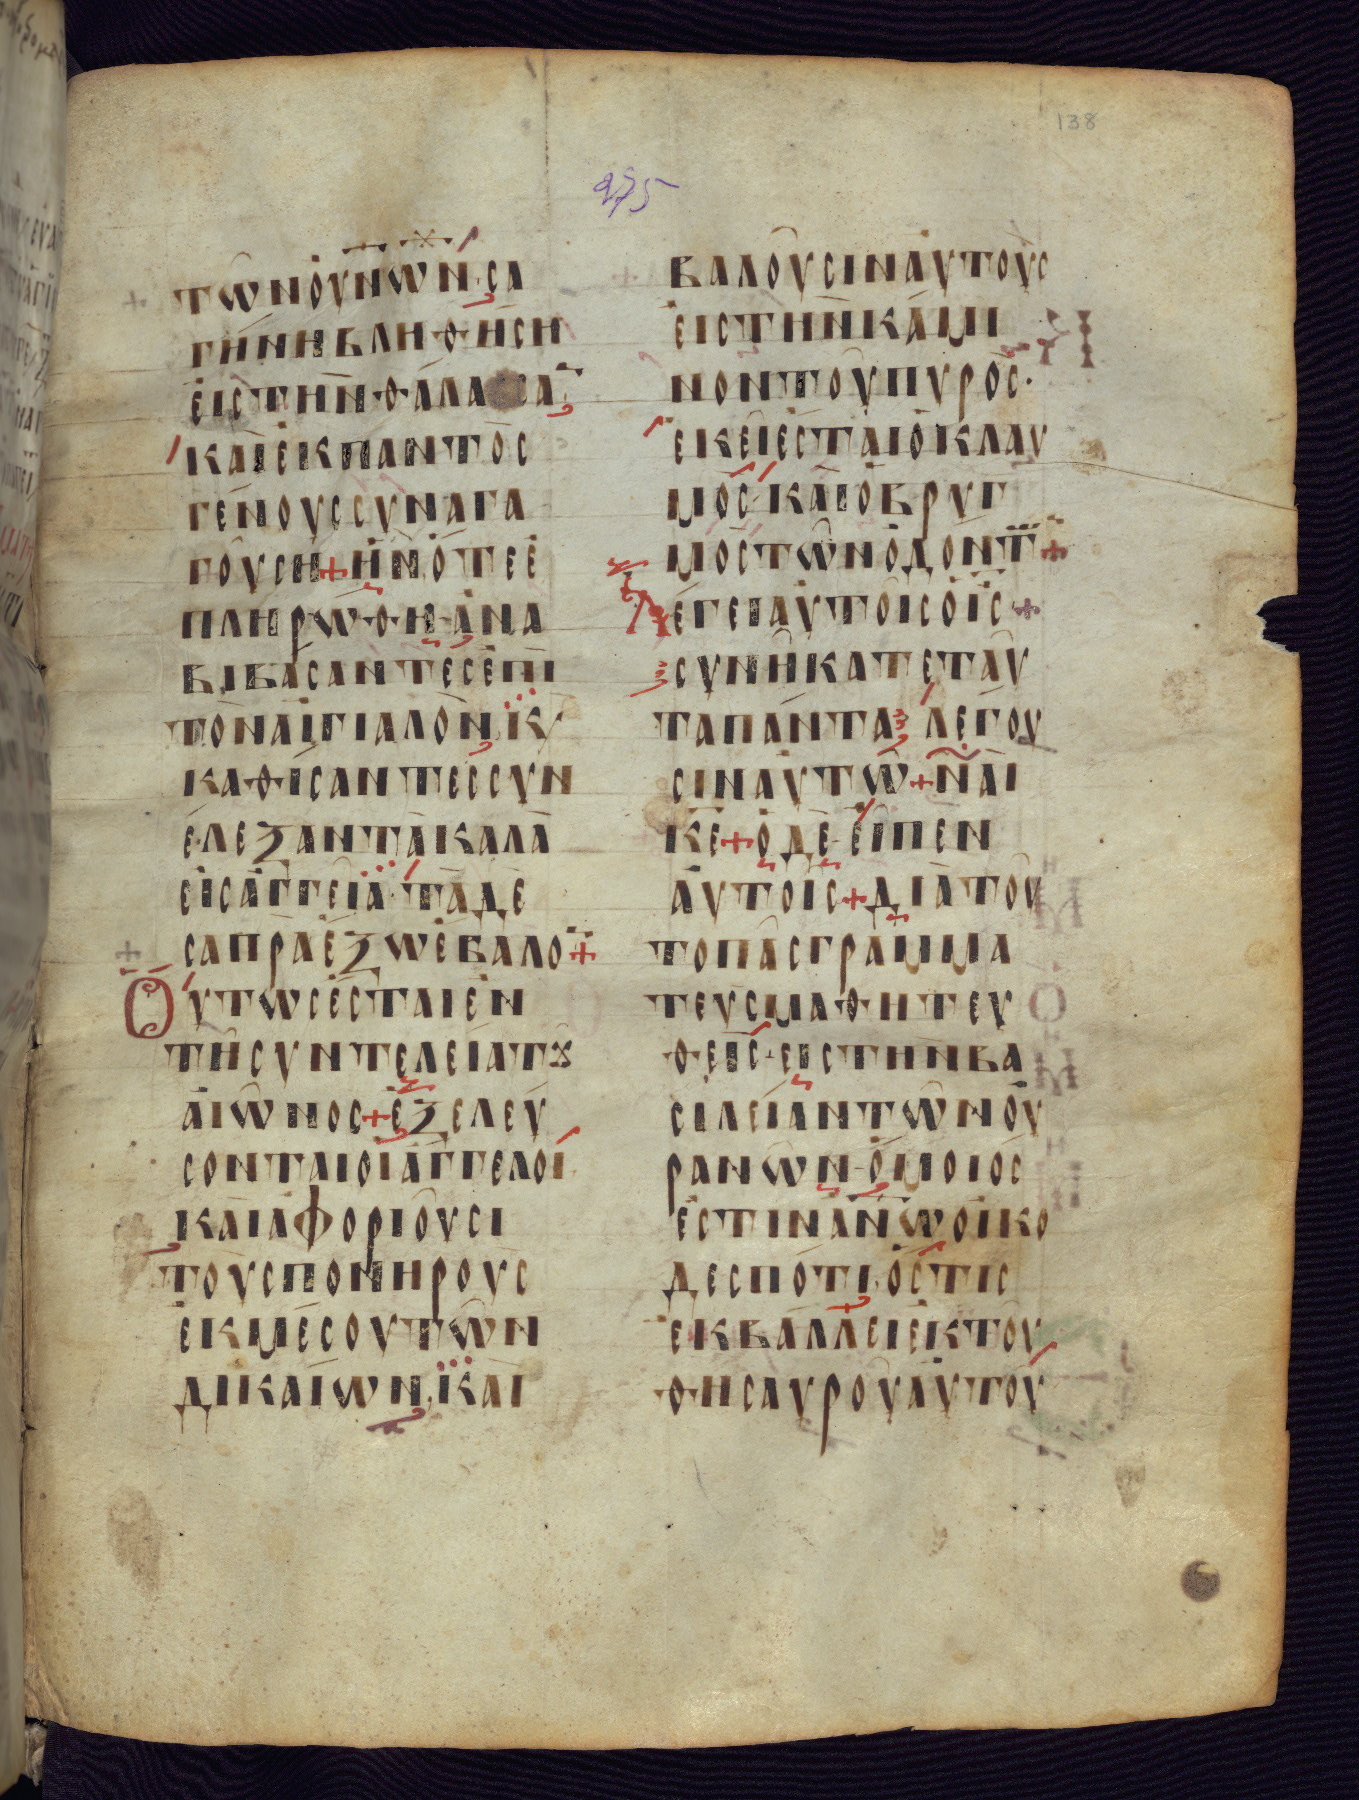 138
275
ΤῶΝΟΥΝῶΝ·ΣΑ
ΓΗΝΗΒΛΗΘΗΣΗ
ΕΙΣΤΗΝΘΑΛΑΣΣΑ̅
ΚΑΙΕΚΠΑΝΤΟΣ
ΓΕΝΟΥΣΣΥΝΑΓΑ
ΓΟΥΣΗ+ΗΝΟΤΕΕ
ΠΛΗΡΩΘΗ·ΑΝΑ
ΒΙΒΑΣΑΝΤΕΣΕΠΙ
ΤΟΝΑΙΓΙΑΛΟΝ·Κ/
ΚΑΘΙΣΑΝΤΕΣΣΥΝ
ΕΛΕΞΑΝΤΑΚΑΛΑ
ΕΙΣΑΓΓΕΙΑ·ΤΑΔΕ
ΣΑΠΡΑΕΞΩΕΒΑΛΟ̅+
ΟΥΤΩΣΕΣΤΑΙΕΝ
ΤΗΣΥΝΤΕΛΕΙΑΤȢ
ΑΙΩΝΟΣ+ΕΞΕΛΕΥ
ΣΟΝΤΑΙΟΙΑΓΓΕΛΟΙ
ΚΑΙΑΦΟΡΙΟΥΣΙ
ΤΟΥΣΠΟΝΗΡΟΥΣ
ΕΚΜΕΣΟΥΤΩΝ
ΔΙΚΑΙΩΝ·ΚΑΙ
ΒΑΛΟΥΣΙΝΑΥΤΟΥΣ
ΕΙΣΤΗΝΚΑΜΙ
ΝΟΝΤΟΥΠΥΡΟΣ·
ΕΚΕΙΕΣΤΑΙΟΚΛΑΥ
ΜΟΣ·ΚΑΙΟΒΡΥΓ
ΜΟΣΤΩΝΟΔΟΝΤ̅+
ΛΕΓΕΙΑΥΤΟΙΣΟΙΣ+
ΣΥΝΗΚΑΤΕΤΑΥ
ΤΑΠΑΝΤΑ ΛΕΓΟΥ
ΣΙΝΑΥΤΩ+ΝΑΙ
ΚΕ+ΟΔΕ·ΕΙΠΕΝ
ΑΥΤΟΙΣ+ΔΙΑΤΟΥ
ΤΟΠΑΣΓΡΑΜΜΑ
ΤΕΥΣΜΑΘΗΤΕΥ
ΘΕΙΣ·ΕΙΣΤΗΝΒΑ
ΣΙΛΕΙΑΝΤΩΝΟΥ
ΡΑΝΩΝ·ΟΜΟΙΟΣ
ΕΣΤΙΝΑΝΩΟΙΚΟ
ΔΕΣΠΟΤΙ·ΟΣΤΙΣ
ΕΚΒΑΛΛΕΙΕΚΤΟΥ
ΘΗΣΑΥΡΟΥΑΥΤΟΥ